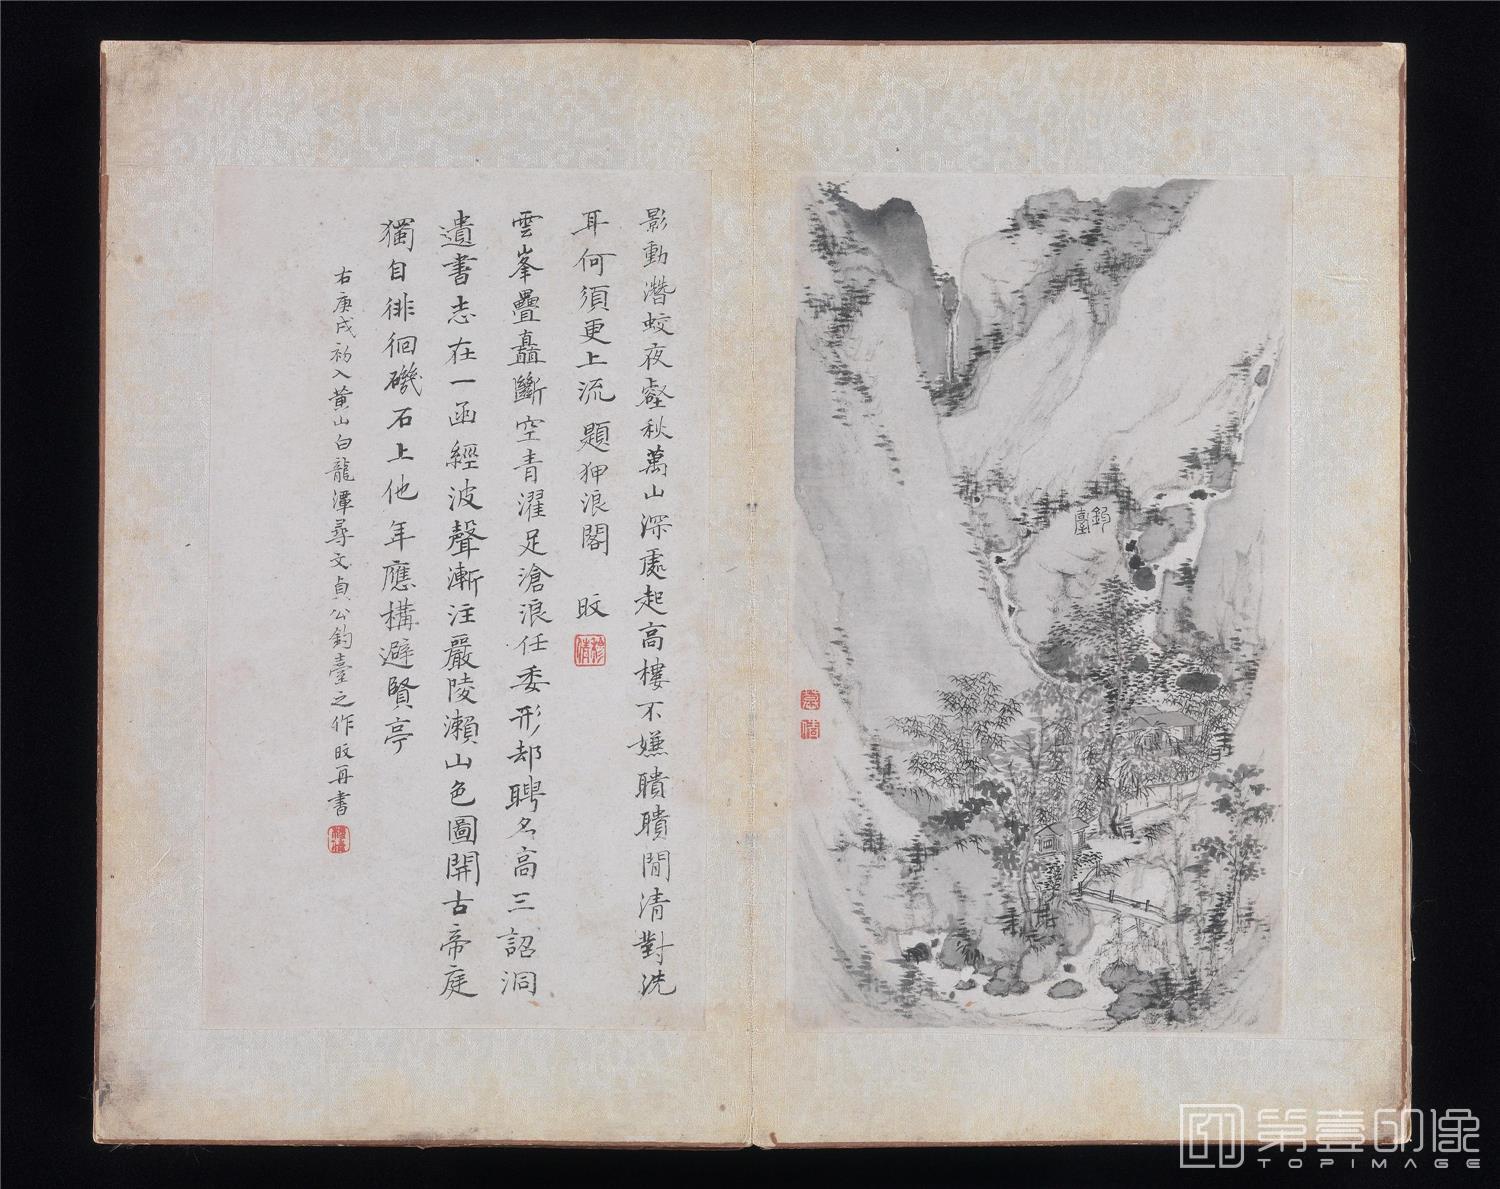 釣臺
影動潛蛟夜壑秋萬山深處起高樓不嫌聵聵閒清對洗
耳何須更上流題狎浪閣 旼
雲峯疊矗斷空青濯足滄浪任委形却聘名高三詔洞
遺書志在一函經波聲漸注嚴陵瀨山色圖開古帝庭
獨自徘徊磯石上他年應構避賢亭
右庚戌初入黃山白龍潭尋文貞公釣臺之作旼再書
第壹印像
TOPIMAGE